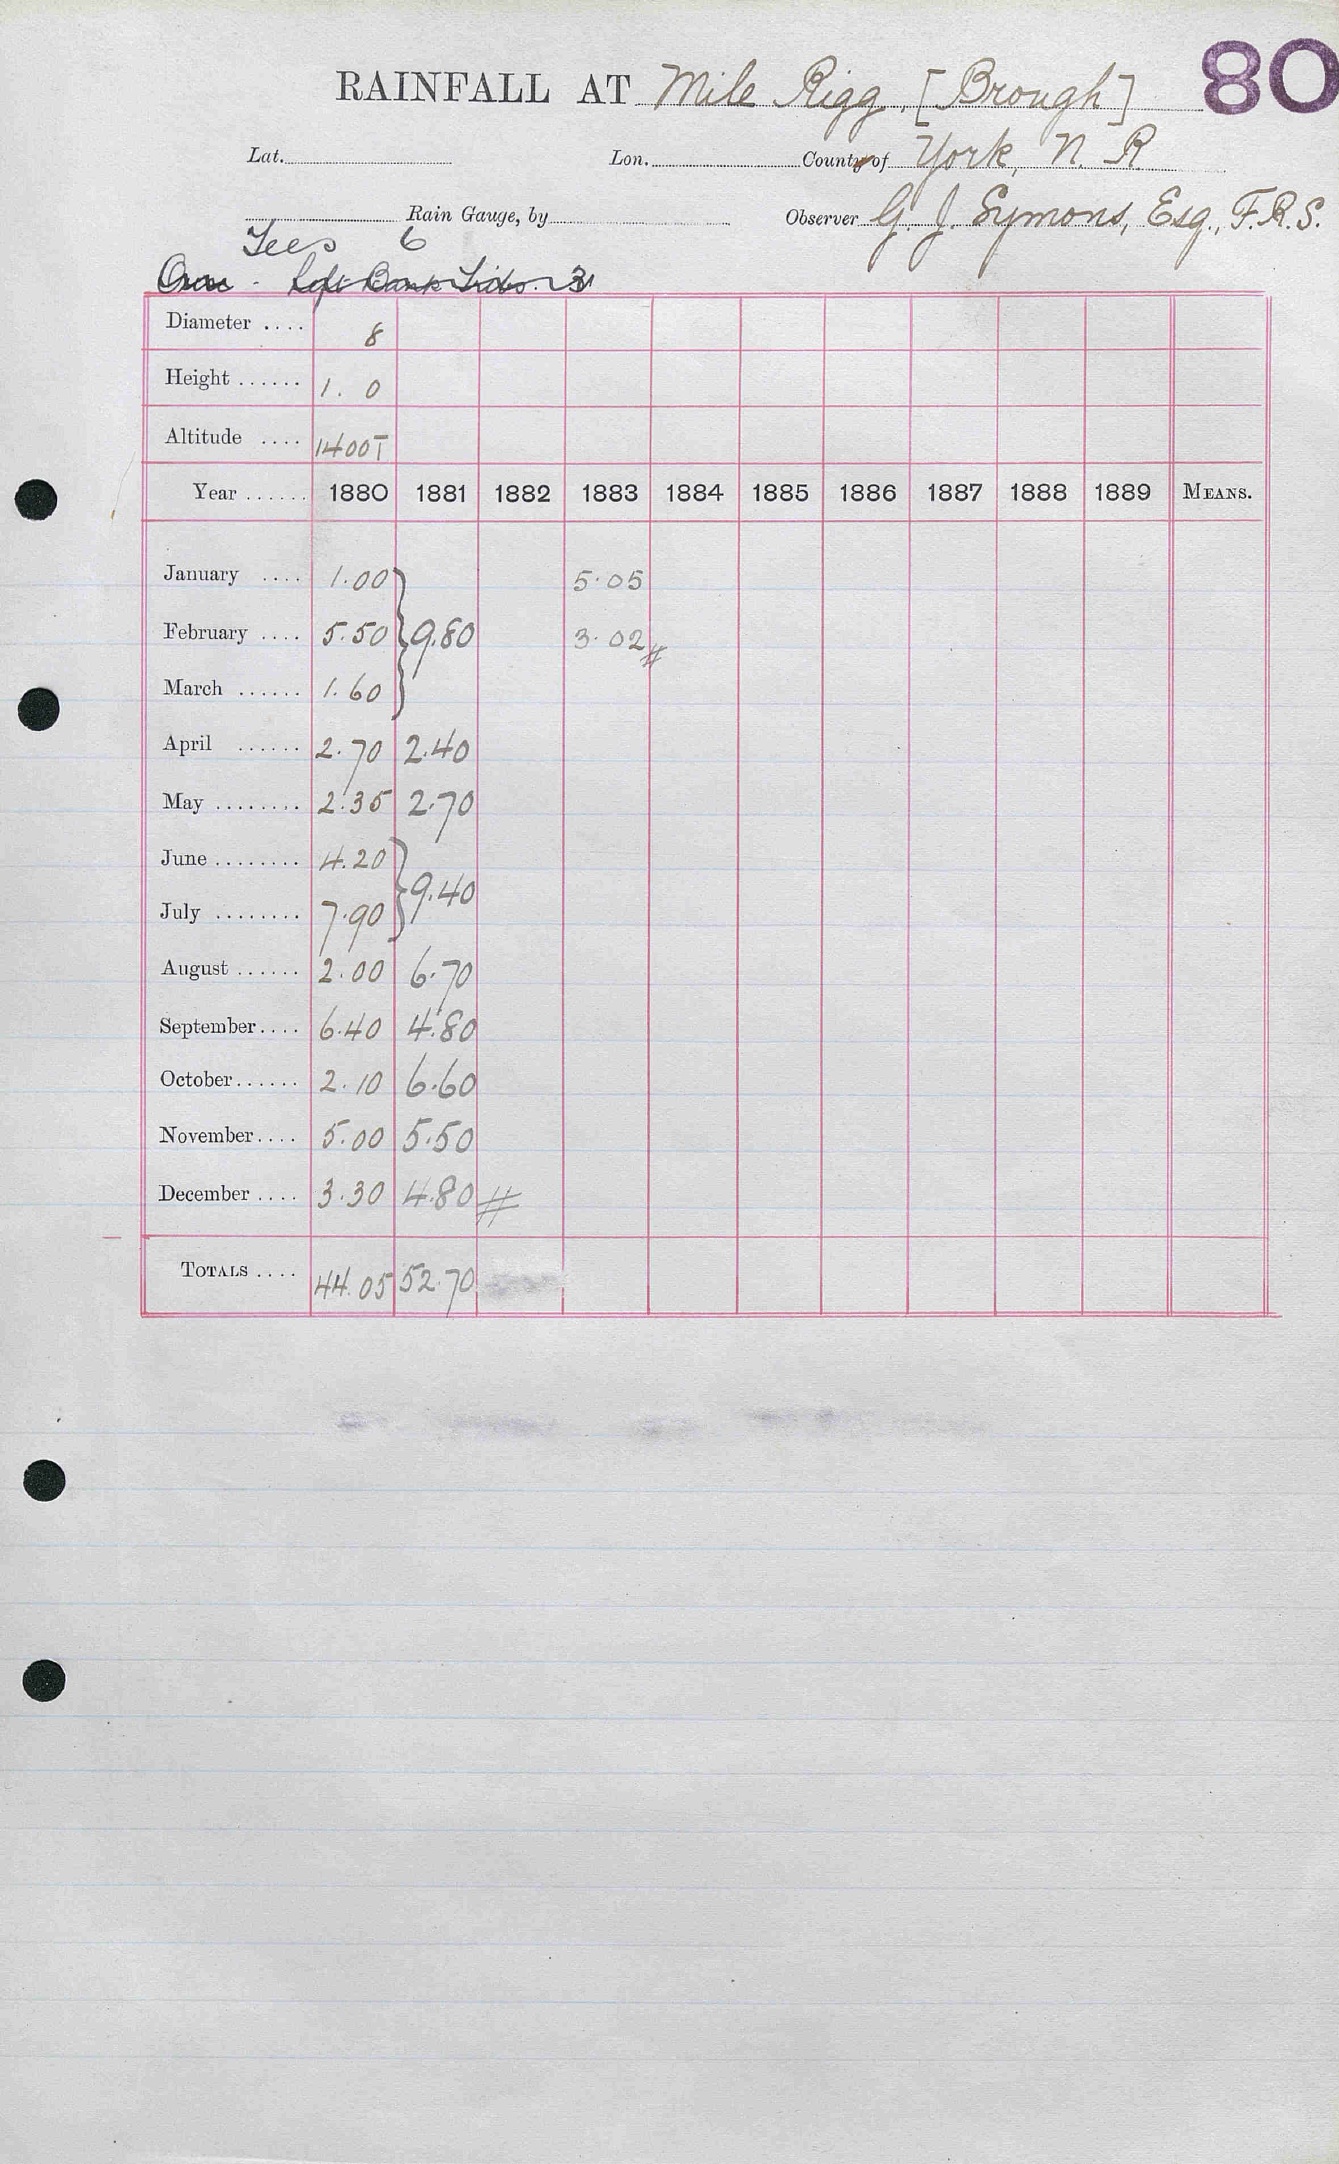 RAINFALL AT Mile Rigg, [Brough] 80
Lat. Lon. County of York, N. R.
Rain Gauge, by Observer G. J. Symons, Esq., F.R.S.
Tees 6
Left Bank 3
Diameter .... 8
Height ...... 1. 0
Altitude .... 1400T
Year ...... 1880 1881 1882 1883 1884 1885 1886 1887 1888 1889 MEANS.
January .... 1.00 5.05
February .... 5.50 } 9.80 3.02 #
March ...... 1.60
April ...... 2.70 2.40
May ........ 2.35 2.70
June ........ 4.20 } 9.40
July ........ 7.90
August ...... 2.00 6.70
September.... 6.40 4.80
October...... 2.10 6.60
November.... 5.00 5.50
December .... 3.30 4.80 #
TOTALS .... 44.05 52.70